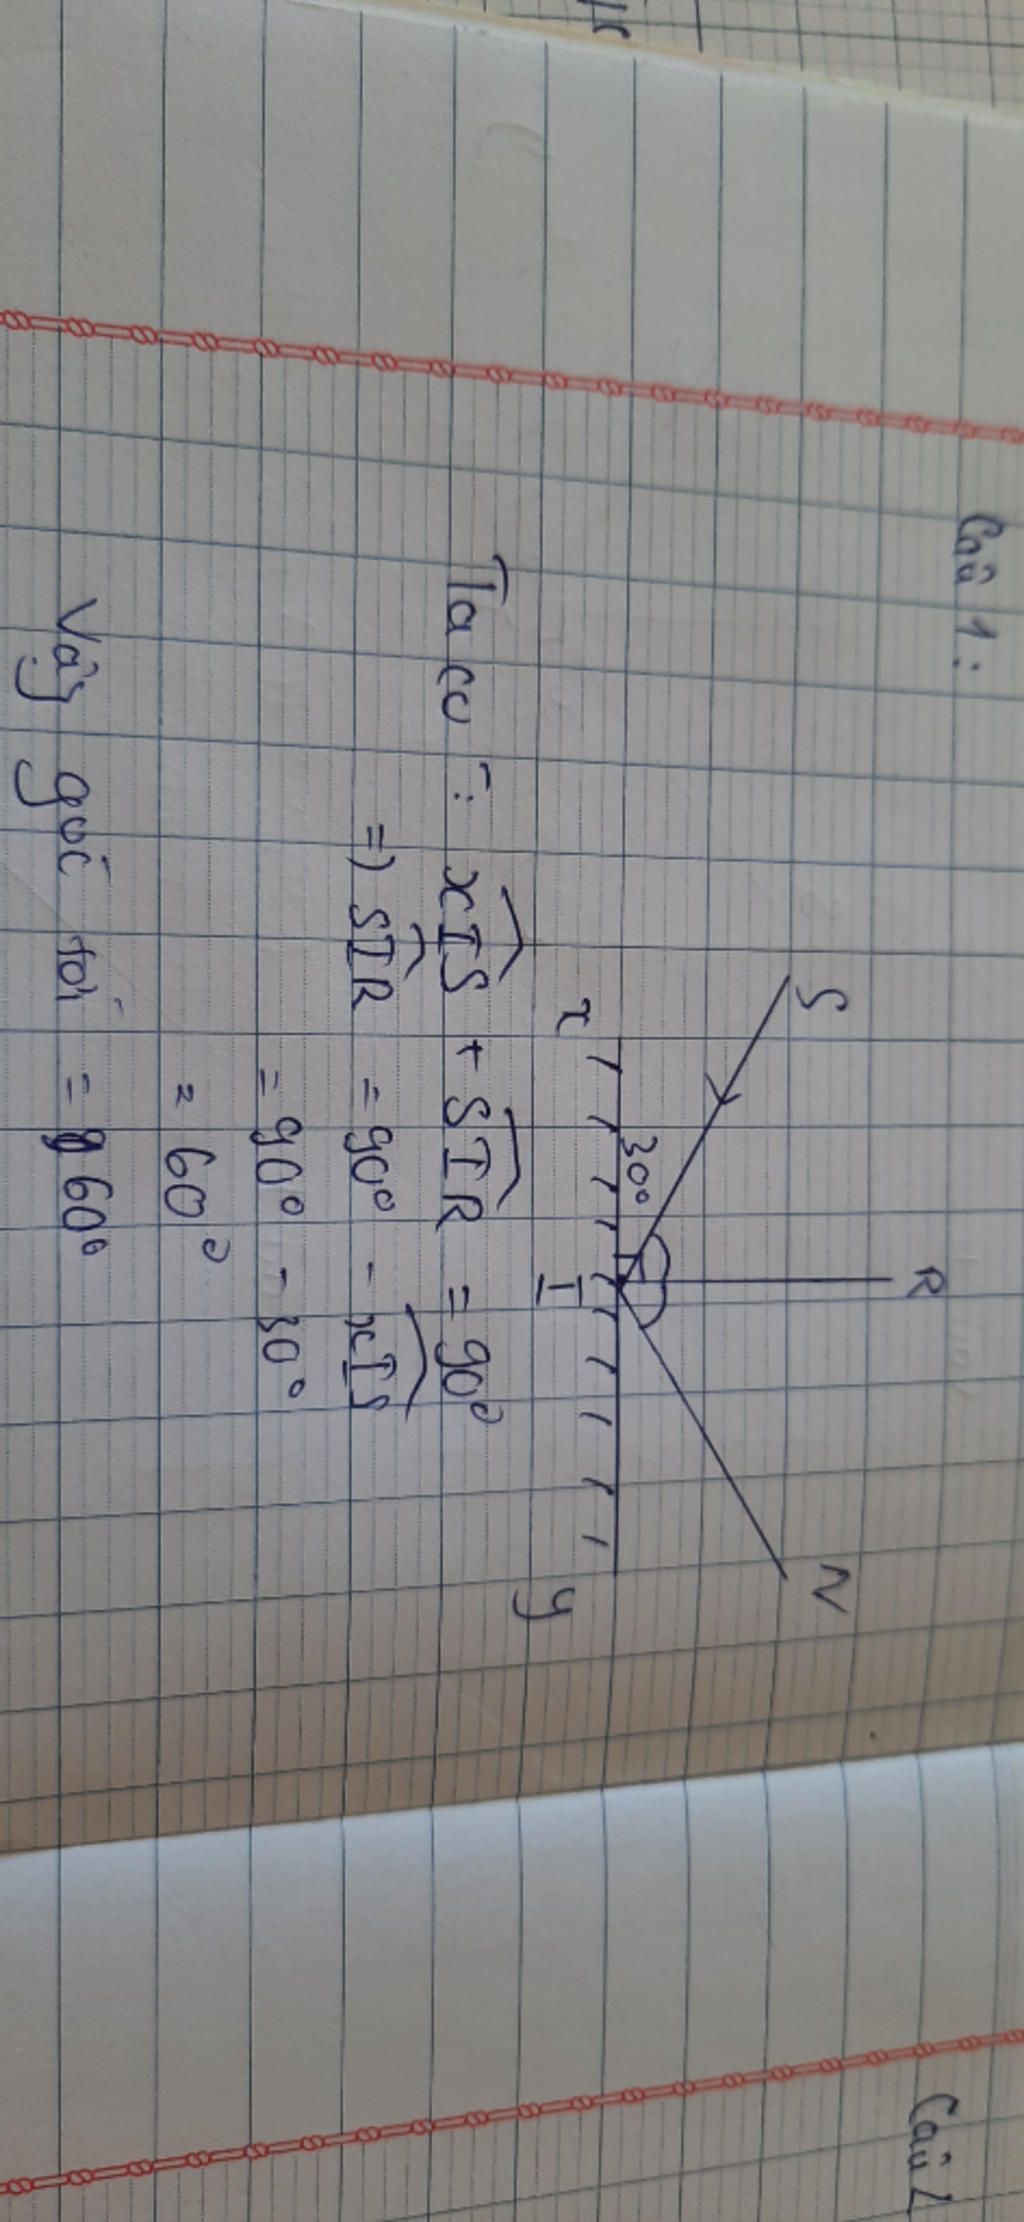 Câu 1:
S
R
N
30°
x
I
y
Ta có: xIS + STR = 90°
=> SIR = 90° - xIS
= 90° - 30°
= 60°
Vậy góc tới = 60°
Câu 2